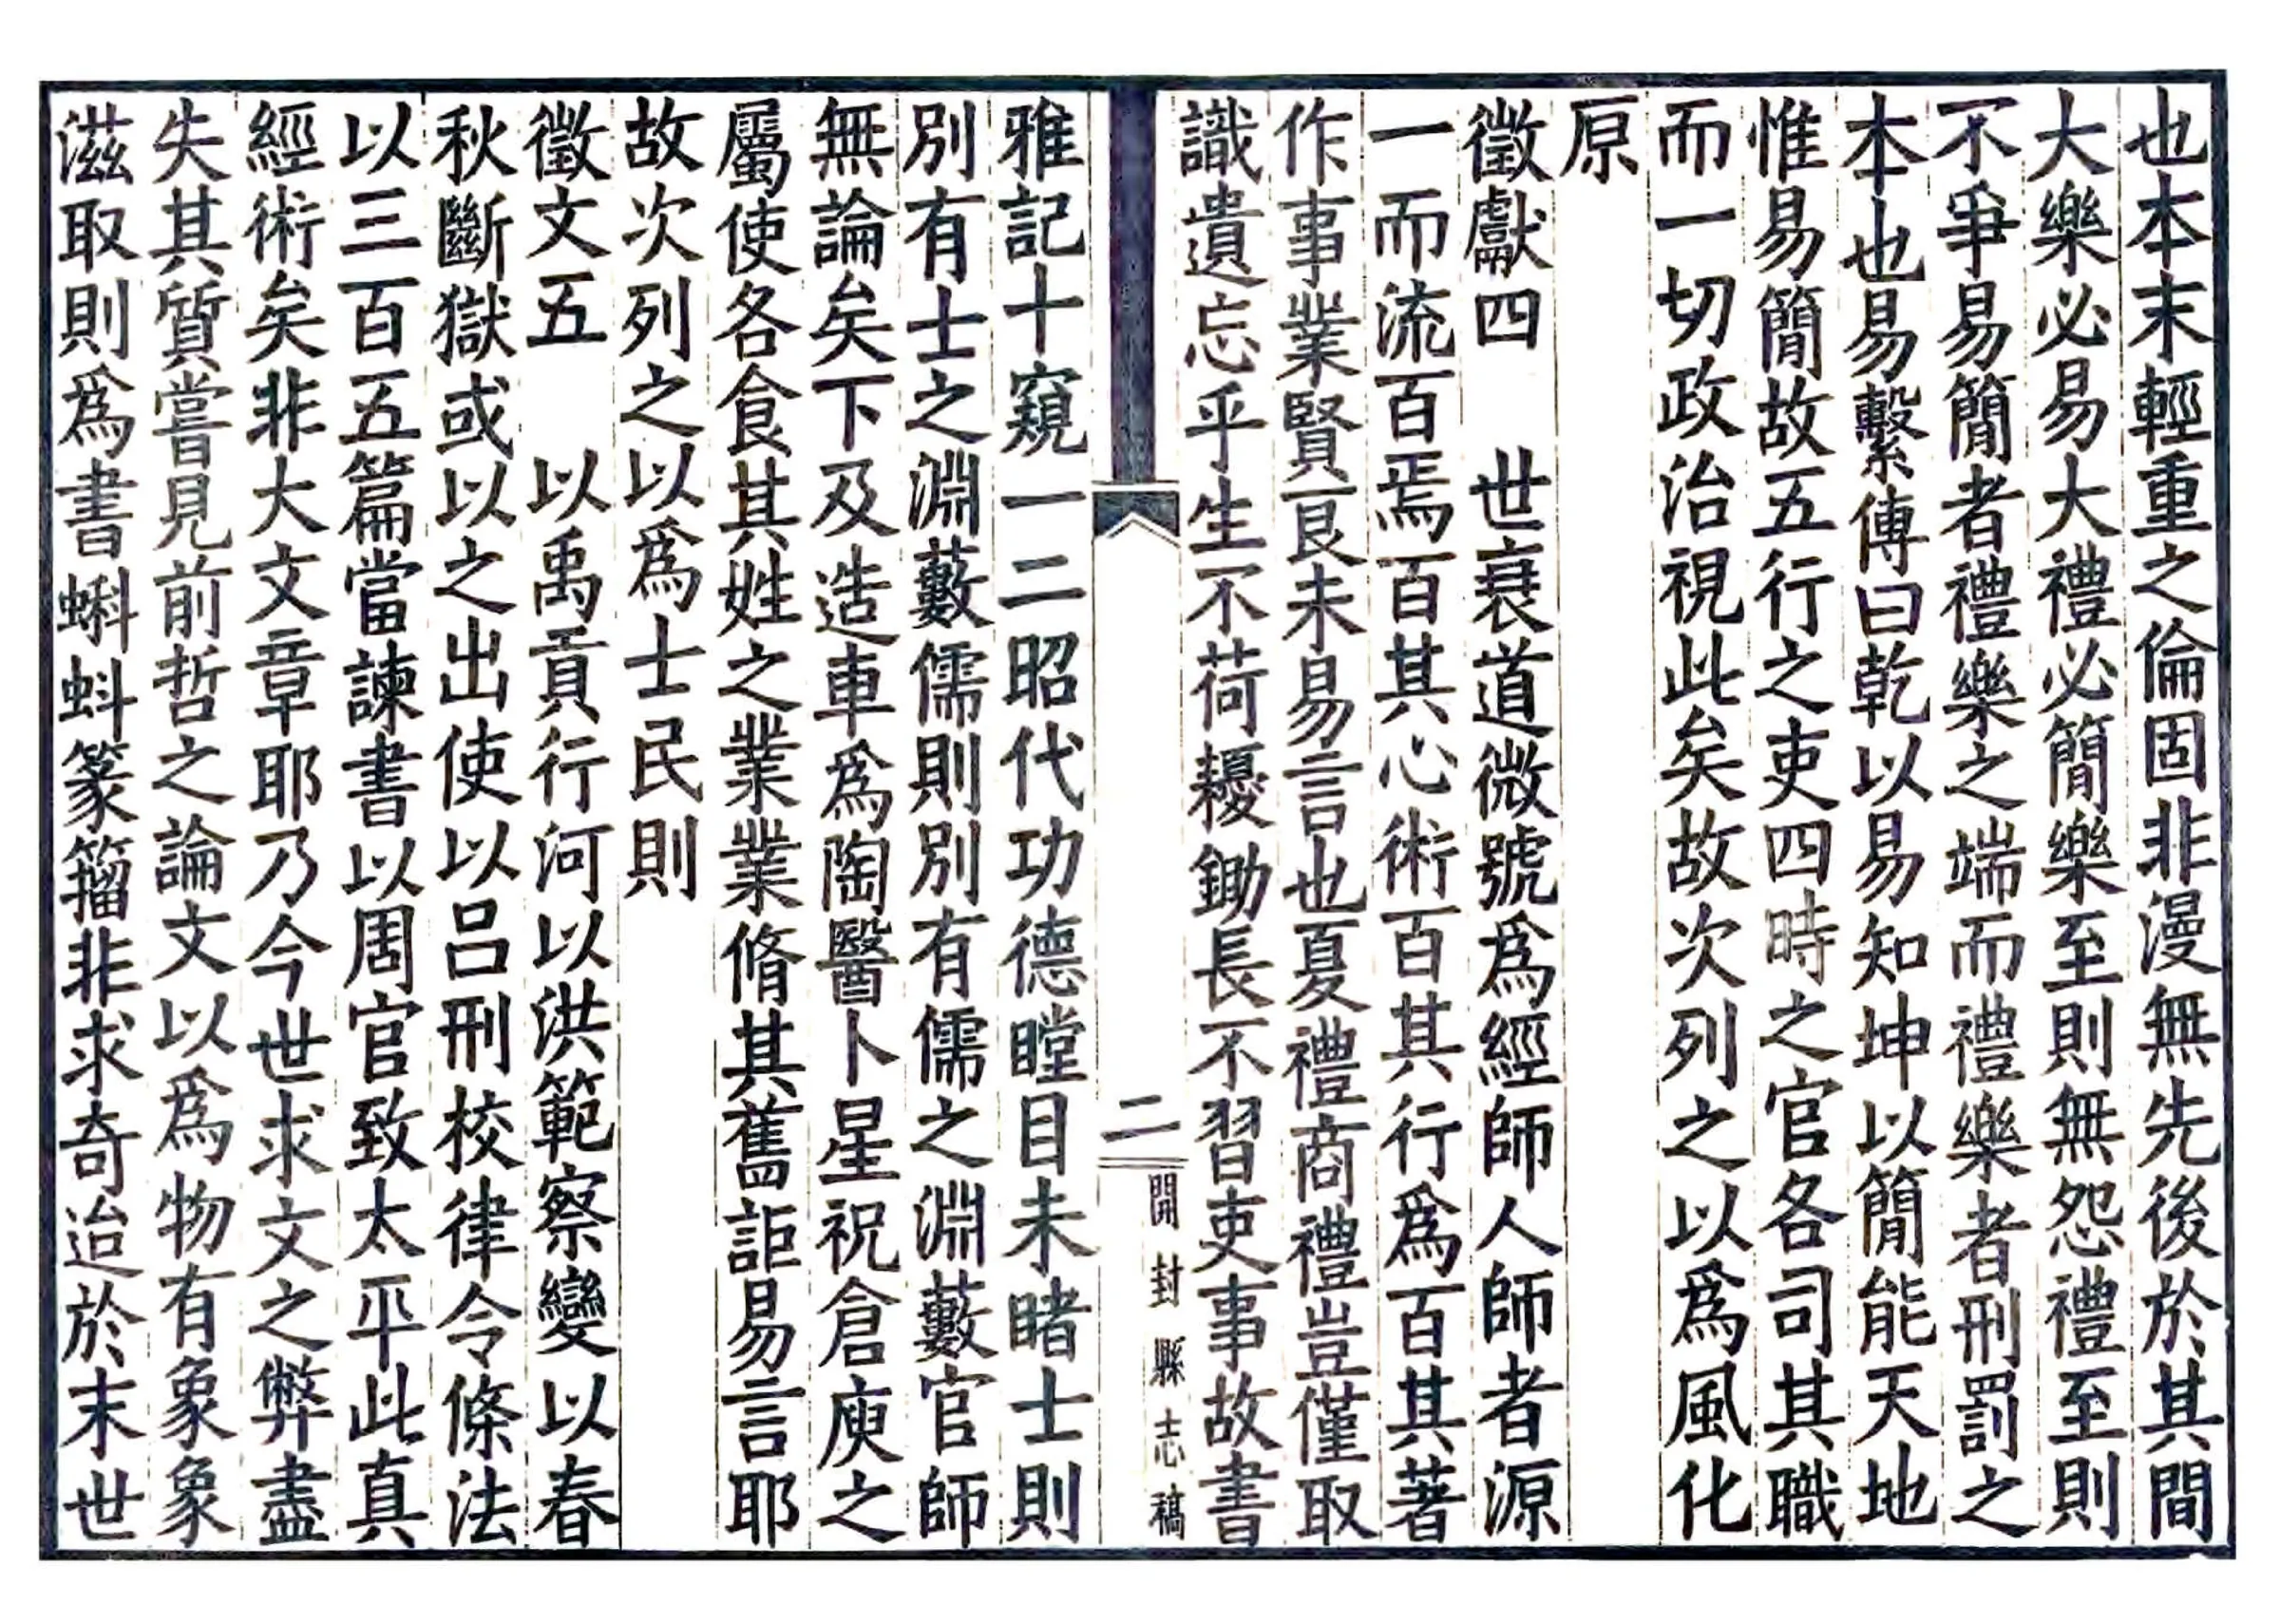 也本末輕重之倫固非漫無先後於其間
大樂必易大禮必簡樂至則無怨禮至則
不爭易簡者禮樂之端而禮樂者刑罰之
本也易繫傳曰乾以易知坤以簡能天地
惟易簡故五行之吏四時之官各司其職
而一切政治視此矣故次列之以爲風化
原
徵獻四　世衰道微號爲經師人師者源
一而流百焉百其心術百其行爲百其著
作事業賢良未易言也夏禮商禮豈僅取
識遺忘乎生不荷耰鋤長不習吏事故書
二
開封縣志稿
雅記十窺一二昭代功德瞠目未睹士則
別有士之淵藪儒則別有儒之淵藪官師
無論矣下及造車爲陶醫卜星祝倉庾之
屬使各食其姓之業業脩其舊詎易言耶
故次列之以爲士民則
徵文五　以禹貢行河以洪範察變以春
秋斷獄或以之出使以呂刑校律令條法
以三百五篇當諫書以周官致太平此真
經術矣非大文章耶乃今世求文之弊盡
失其質嘗見前哲之論文以爲物有象象
滋取則爲書蝌蚪篆籀非求奇迨於末世